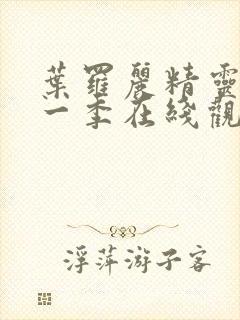 葉羅麗精靈
一季在綫觀
浮萍游子客